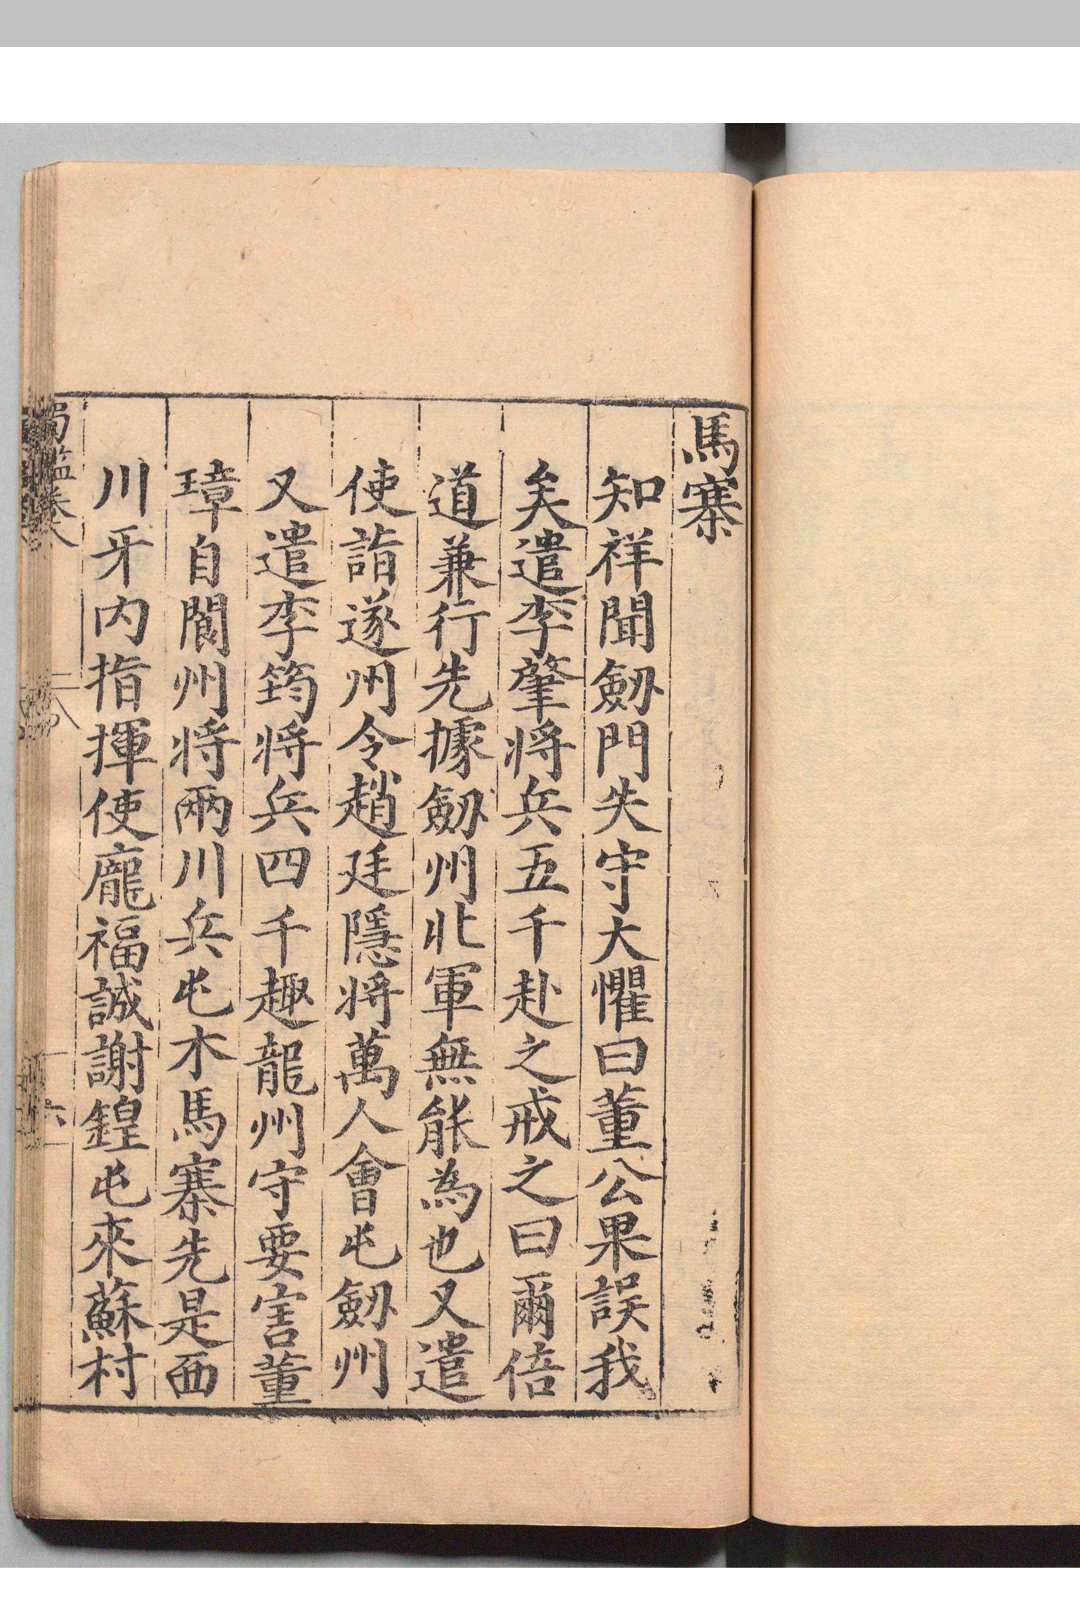 馬寨
知祥聞劒門失守大懼曰董公果誤我
矣遣李肇將兵五千赴之戒之曰爾倍
道兼行先據劒州北軍無能為也又遣
使詣遂州令趙廷隱將萬人會屯劒州
又遣李筠將兵四千趣龍州守要害董
璋自閬州將兩川兵屯木馬寨先是西
川牙內指揮使龐福誠謝鍠屯來蘇村
蜀鑑卷八
六